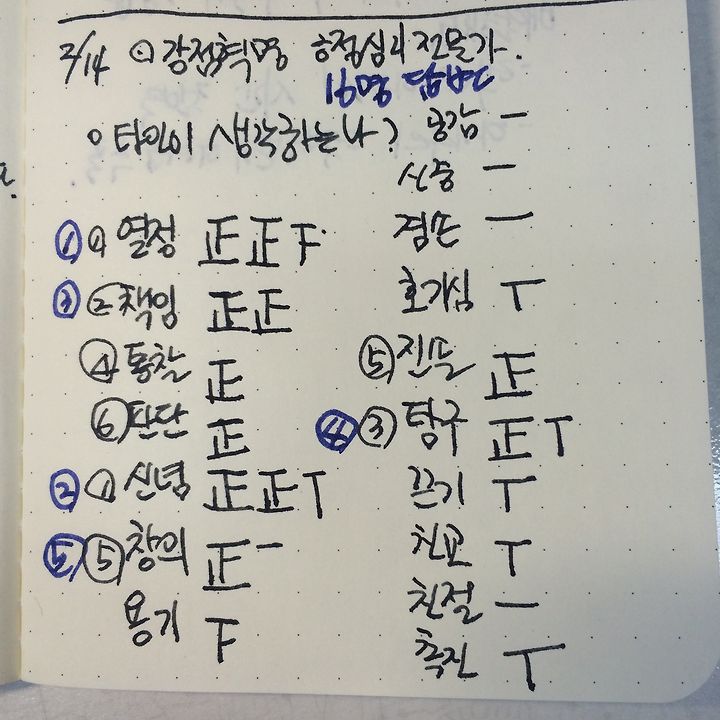 2/14 ⊙ 강점혁명 긍정심리전문가
16명 답변
○ 타인이 생각하는 나?
① ① 열정 正正F
③ ② 책임 正正
④ 통찰 正
⑥ 판단 正
② ① 신념 正正T
⑤ ⑤ 창의 正一
용기 F
공감 一
신중 一
겸손 一
호기심 T
⑤ 진실 正
④ ③ 탐구 正T
끈기 T
친교 T
친절 一
촉진 T